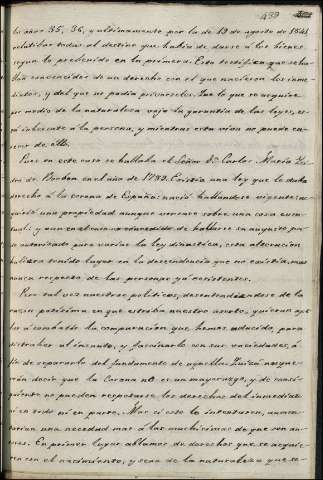 439
los años 35, 36, y ultimamente por la de 19 de agosto de 1841
relatibas todas al destino que habia de darse á los bienes
segun lo prebenido en la primera. Esto testifica que se ha-
llan convencidos de un derecho con el que nacieron los inme-
diatos, y del que no podia privarseles. Que lo que se adquiere
por medio de la naturaleza vajo la garantia de las leyes, es-
tá inherente á la persona, y mientras esta viva no puede ca-
recer de ello.
Pues en este caso se hallaba el Señor Dn Carlos Maria Isi-
dro de Borbon en el año de 1789. Existia una ley que le daba
derecho á la corona de España: nació hallandose vigente; ad-
quirió una propiedad aunque versase sobre una cosa even-
tual: y aun cabiendo de hallarse su augusto pa-
dre autorizado para variar la ley dinastica, esta alteracion
hubiera tenido lugar en la descendencia que no existia, mas
nunca respecto de las personas ya existentes.
Pero tal vez nuestros politicos, desentendiendose de la
razon potisima en que estriba nuestro aserto, quieran ape-
lar á combatir la comparacion que hemos aducido, para
distraher al incauto, y fascinarlo con sus vaciedades, á
fin de separarlo del fundamento de aquella. Quizá nos que-
rrán decir que la Corona no es un mayorazgo, y de consi-
guiente no pueden respetarse los derechos del inmediato
ni en todo ni en parte. Mas si esto lo intentaren, aumen-
tarian una necedad mas á las muchisimas de que son au-
tores. En primer lugar ablamos de derechos que se adquie-
ren con el nacimiento, y sean de la naturaleza que se